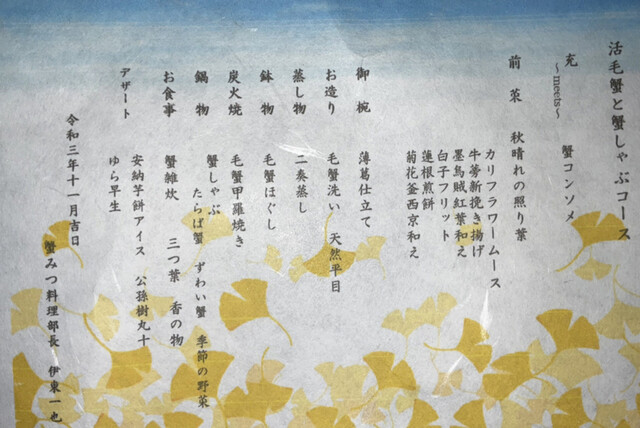 活毛蟹と蟹しゃぶコース
充 ～meets～ 蟹コンソメ
前菜 秋晴れの照り葉
カリフラワームース
牛蒡新挽き揚げ
墨烏賊紅葉和え
白子フリット
蓮根煎餅
菊花釜西京和え
御椀 薄葛仕立て
お造り 毛蟹洗い 天然平目
蒸し物 二奏蒸し
鉢物 毛蟹ほぐし
炭火焼 毛蟹甲羅焼き
鍋物 蟹しゃぶ
たらば蟹 ずわい蟹 季節の野菜
お食事 蟹雑炊 三つ葉 香の物
デザート 安納芋餅アイス 公孫樹丸十
ゆら早生
令和三年十一月吉日
蟹みつ料理部長 伊東一也